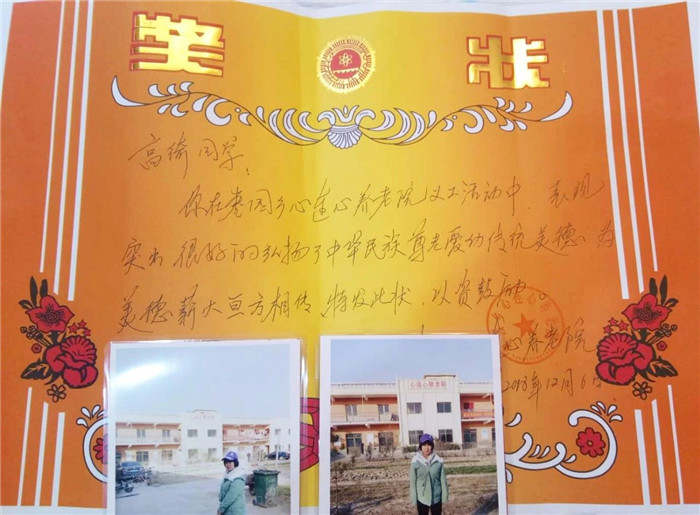 奖状
高绮同学：
你在枣园乡心连心养老院义工活动中，表现
突出，很好的弘扬了中华民族尊老爱幼传统美德。为
美德薪火
相传，特发此状，以资鼓励。
心养老院
2013年12月6日
心连心养老院